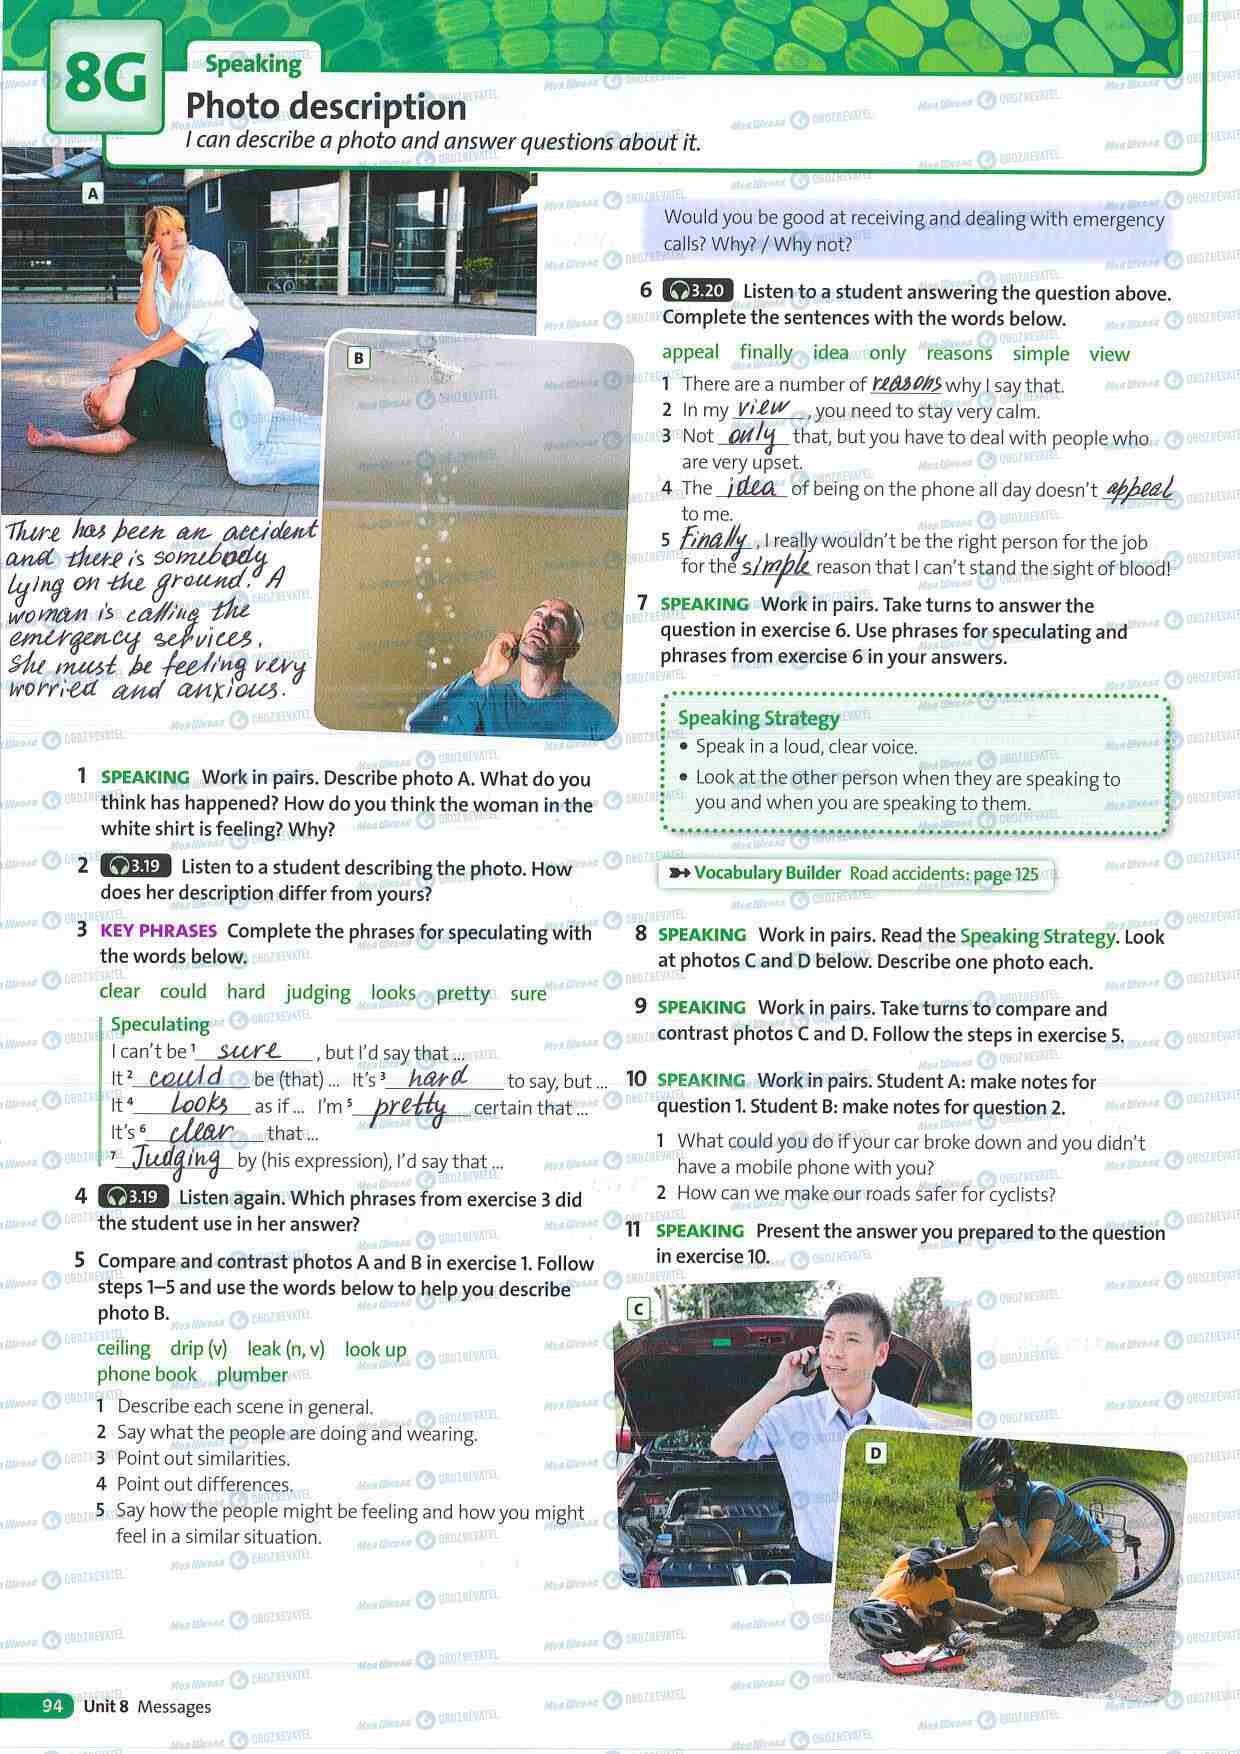 8G
Speaking
Photo description
I can describe a photo and answer questions about it.
A
B
There has been an accident
and there is somebody
lying on the ground. A
woman is calling the
emergency services.
She must be feeling very
worried and anxious.
1 SPEAKING Work in pairs. Describe photo A. What do you
think has happened? How do you think the woman in the
white shirt is feeling? Why?
2 3.19 Listen to a student describing the photo. How
does her description differ from yours?
3 KEY PHRASES Complete the phrases for speculating with
the words below.
clear could hard judging looks pretty sure
Speculating
I can't be 1 sure , but I'd say that ...
It 2 could be (that) ... It's 3 hard to say, but ...
It 4 looks as if ... I'm 5 pretty certain that ...
It's 6 clear that ...
7 Judging by (his expression), I'd say that ...
4 3.19 Listen again. Which phrases from exercise 3 did
the student use in her answer?
5 Compare and contrast photos A and B in exercise 1. Follow
steps 1–5 and use the words below to help you describe
photo B.
ceiling drip (v) leak (n, v) look up
phone book plumber
1 Describe each scene in general.
2 Say what the people are doing and wearing.
3 Point out similarities.
4 Point out differences.
5 Say how the people might be feeling and how you might
feel in a similar situation.
Would you be good at receiving and dealing with emergency
calls? Why? / Why not?
6 3.20 Listen to a student answering the question above.
Complete the sentences with the words below.
appeal finally idea only reasons simple view
1 There are a number of reasons why I say that.
2 In my view , you need to stay very calm.
3 Not only that, but you have to deal with people who
are very upset.
4 The idea of being on the phone all day doesn't appeal
to me.
5 Finally , I really wouldn't be the right person for the job
for the simple reason that I can't stand the sight of blood!
7 SPEAKING Work in pairs. Take turns to answer the
question in exercise 6. Use phrases for speculating and
phrases from exercise 6 in your answers.
Speaking Strategy
• Speak in a loud, clear voice.
• Look at the other person when they are speaking to
you and when you are speaking to them.
Vocabulary Builder Road accidents: page 125
8 SPEAKING Work in pairs. Read the Speaking Strategy. Look
at photos C and D below. Describe one photo each.
9 SPEAKING Work in pairs. Take turns to compare and
contrast photos C and D. Follow the steps in exercise 5.
10 SPEAKING Work in pairs. Student A: make notes for
question 1. Student B: make notes for question 2.
1 What could you do if your car broke down and you didn't
have a mobile phone with you?
2 How can we make our roads safer for cyclists?
11 SPEAKING Present the answer you prepared to the question
in exercise 10.
C
D
94 Unit 8 Messages
Моя Школа OBOZREVATEL